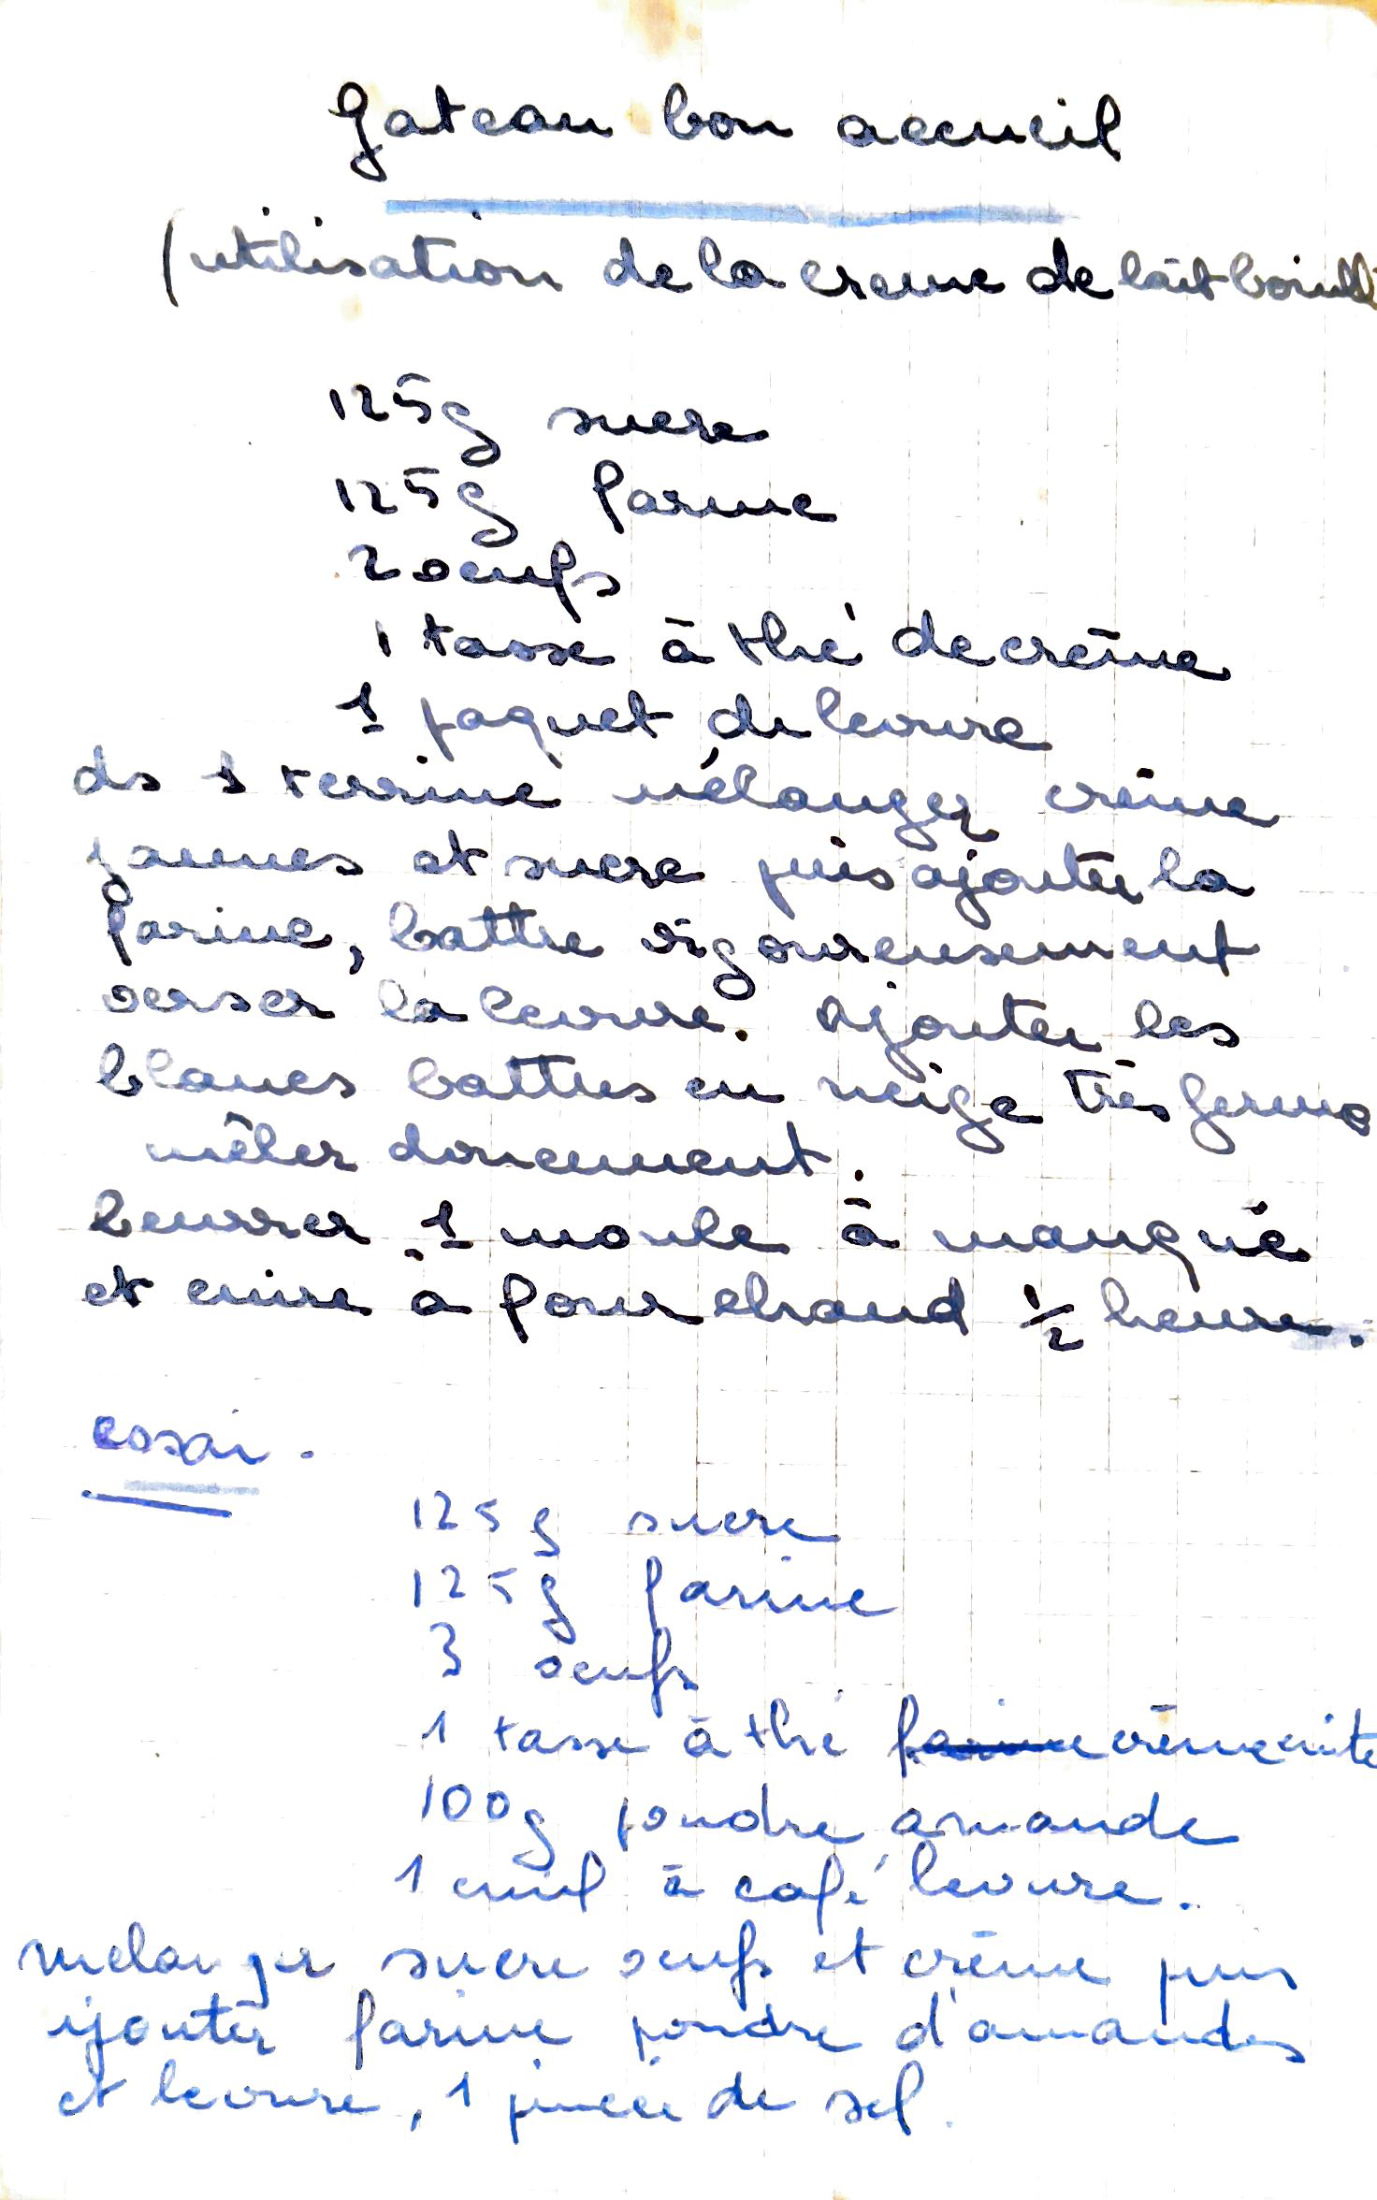 Gateau bon accueil
(utilisation de la creme de lait bouilli
125g sucre
125g farine
2 oeufs
1 tasse à thé de crème
1 paquet de levure
ds 1 terrine mélanger crème
jaunes et sucre puis ajouter la
farine, battre vigoureusement
verser la levure. ajouter les
blancs battus en neige très ferme
mêler doucement.
beurrer 1 moule à manqué
et cuire à four chaud 1/2 heure.
essai.
125g sucre
125g farine
3 oeufs
1 tasse à thé farine crème cuite
100g poudre amande
1 cuil à café levure.
melanger sucre oeufs et crème puis
ajouter farine poudre d'amandes
et levure, 1 pincée de sel.